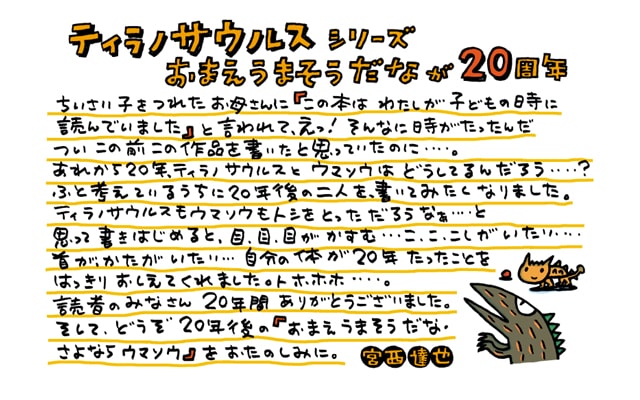 ティラノサウルス シリーズ
おまえうまそうだな が 20周年
ちいさい子をつれた お母さんに『この本は わたしが 子どもの時に
読んでいました』と言われて、えっ！そんなに時がたったんだ
つい この前この作品を書いたと思っていたのに‥‥。
あれから20年、ティラノサウルスと ウマソウは どうしてるんだろう‥‥?
ふと考えているうちに20年後の二人を、書いてみたくなりました。
ティラノサウルスもウマソウもトシをとっただろうなぁ‥‥と
思って書きはじめると、目、目、目が かすむ‥‥こ、こ、こしがいたい‥‥
首が かたが いたい‥‥自分の体が20年 たったことを
はっきり おしえてくれました。トホホホ‥‥。
読者のみなさん 20年間 ありがとうございました。
そして、どうぞ 20年後の『おまえうまそうだな・
さよならウマソウ』を おたのしみに。
宮西達也